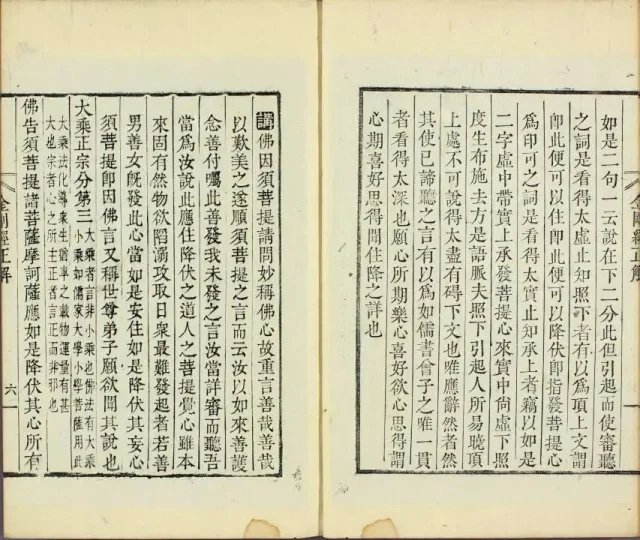 金剛經正解
如是二句一云說在下二分此但引起而使審聽
之詞是看得太虛止知照下者有以為頂上文
卽此便可以住卽此便可以降伏卽指發菩提心
為印可之詞是看得太實止知承上者竊以如是
二字虛中帶實上承發菩提心來實中尚虛下照
度生布施去方是語脈夫照下引起人所易曉頂
上處不可說得太盡有碍下文也唯應辭然者然
其使已諦聽之言有以為如儒書曾子之唯一貫
者看得太深也願心所期樂心喜好欲心思得謂
心期喜好思得聞住降之詳也
講佛因須菩提請問妙稱佛心故重言善哉善哉
以歎美之遂順須菩提之言而云汝以如來善護
念善付囑此善發我未發之言汝當詳審而聽吾
當為汝說此應住降伏之道人之菩提覺心雖本
來固有然物欲陷溺攻取日衆最難發起者若善
男善女旣發此心當如是安住如是降伏其妄心
須菩提卽因佛言又稱世尊弟子願欲聞其說也
大乘正宗分第三
大乘者言非小乘也佛法有大乘
小乘如儒家大學小學菩薩用此
大乘法化導衆生猶車之載物運量有甚
大也宗者心之所主正者言正而非邪也
佛告須菩提諸菩薩摩訶薩應如是降伏其心所有
金剛經正解
六